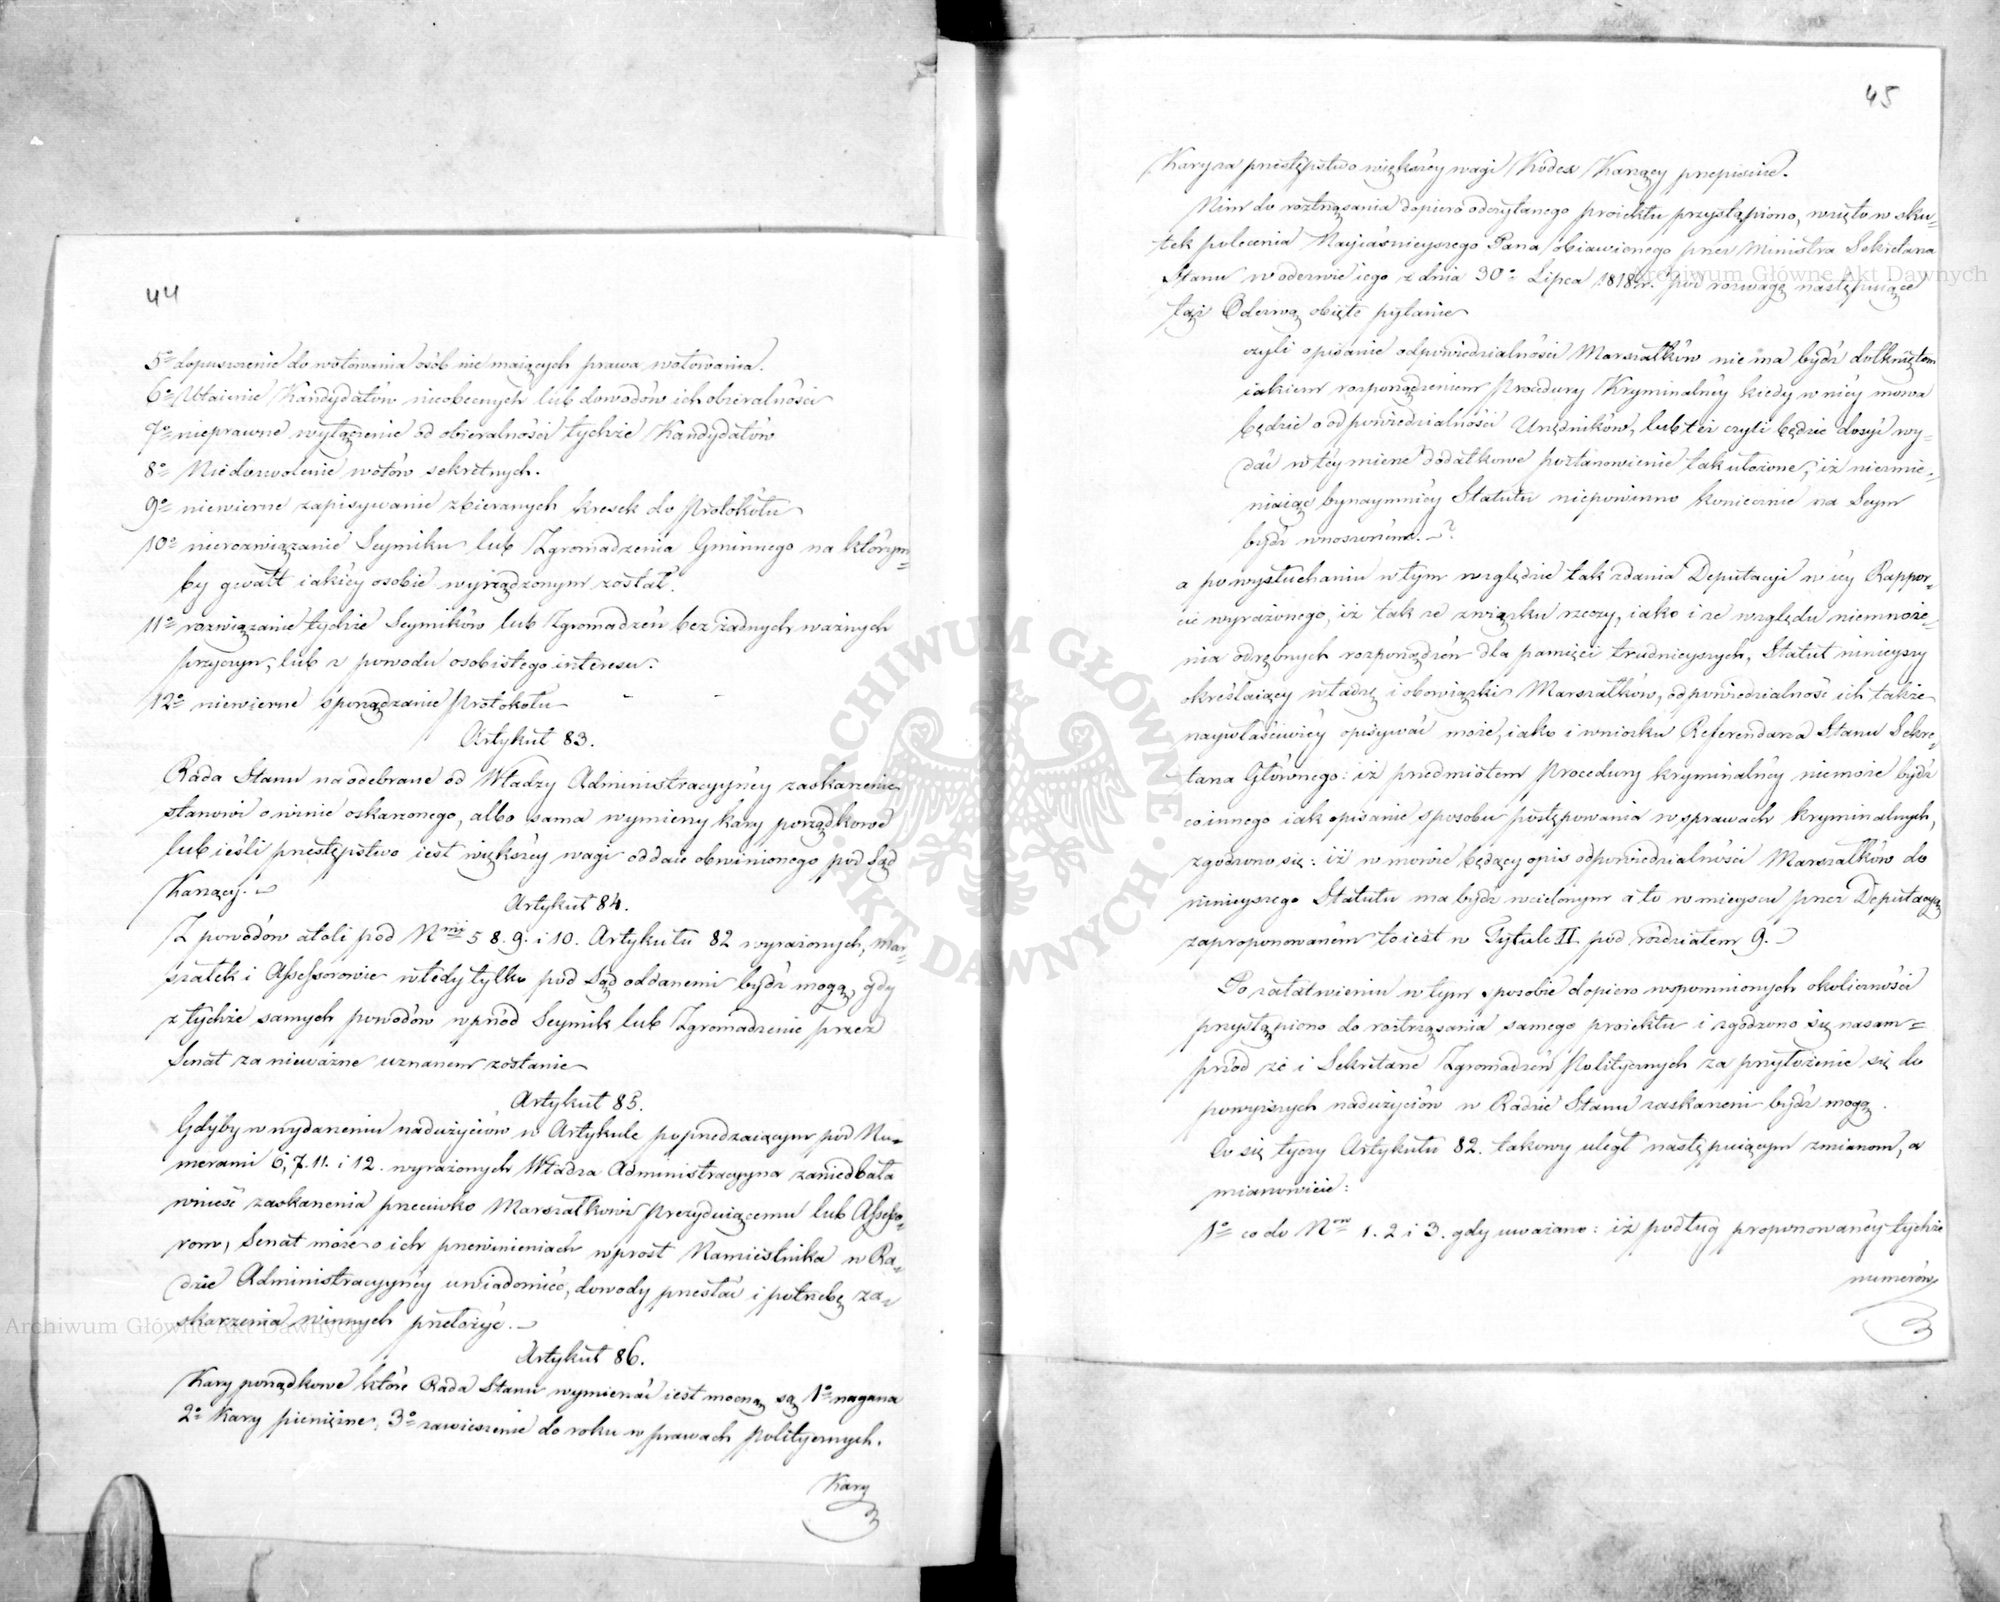 44
5º dopuszczenie do wotowania osób nie maiących prawa wotowania.
6º Utaienie Kandydatów nieobecnych lub dowodów ich obieralności
7º nieprawne wyłączenie od obieralności tychże Kandydatów
8º Niedozwolenie wotów sekretnych.
9º niewierne zapisywanie zbieranych kresek do Protokółu
10º nierozwiązanie Seymiku lub Zgromadzenia Gminnego na którym=
by gwałt iakiey osobie wyrządzonym został.
11º rozwiązanie tychże Seymików lub Zgromadzeń bez żadnych ważnych
przyczyn, lub z powodu osobistego interesu.
12º niewierne sporządzanie Protokołu
Artykuł 83.
Rada Stanu na odebrane od Władzy Administracyyney zaskarzenie
stanowi o winie oskarzonego, albo sama wymierzy kary porządkowe
lub ieśli przestępstwo iest większey wagi oddaie obwinionego pod Sąd
Karzący.
Artykuł 84.
Z powodów atoli pod Nmi 5 8. 9. i 10. Artykułu 82 wyrażonych, Mar=
szałek i Assessorowie wtedy tylko pod Sąd oddanemi bydź mogą, gdy
z tychże samych powodów wprzód Seymik lub Zgromadzenie przez
Senat za nieważne uznanem zostanie
Artykuł 85.
Gdyby w wydarzeniu nadużyciów w Artykule poprzedzaiącym pod Nu=
merami 6, 7. 11. i 12. wyrażonych Władza Administracyyna zaniedbała
wnieść zaskarzenia przeciwko Marszałkowi Prezyduiącemu lub Assesso=
rom, Senat może o ich przewinieniach wprost Namiestnika w Ra=
dzie Administracyyney uwiadomić, dowody przesłać i potrzebę za=
skarzenia winnych przełożyć.
Artykuł 86.
Kary porządkowe które Rada Stanu wymierzać iest mocną są 1º nagana
2º Kary pieniężne, 3º zawieszenie do roku w prawach Politycznych.
Kary
45
Kary za przestępstwo większey wagi Kodex Karzący przepisuie.
Nim do roztrząsania dopiero odczytanego proiektu przystąpiono, wzięto w sku=
tek polecenia Nayiaśnieyszego Pana obiawionego przez Ministra Sekretarza
Stanu w odezwie iego z dnia 30º Lipca 1818 r. pod rozwagę następuiące
tąż Odezwą obięte pytanie
czyli opisanie odpowiedzialności Marszałków nie ma bydź dotkniętem
iakiem rozporządzeniem Procedury Kryminalney kiedy w niey mowa
będzie o odpowiedzialności Urzędników, lub też czyli będzie dosyć wy=
dać w tey mierze dodatkowe postanowienie tak ułożone, iż niezmie=
niaiąc bynaymniey Statutu niepowinno koniecznie na Seym
bydź wnoszonem. ?
a po wysłuchaniu w tym względzie tak zdania Deputacyi w iey Rappor=
cie wyrażonego, iż tak ze związku rzeczy, iako i ze względu niemnoże=
nia odrębnych rozporządzeń dla pamięci trudnieyszych, Statut ninieyszy
określaiący władzę i obowiązki Marszałków, odpowiedzialność ich także
naywłaściwiey opisywać może, iako i wniosku Referendarza Stanu Sekre=
tarza Głównego: iż przedmiotem Procedury kryminalney niemoże bydź
co innego iak opisanie sposobu postępowania w sprawach kryminalnych,
zgodzono się: iż w mowie będący opis odpowiedzialności Marszałków do
ninieyszego Statutu ma bydź wcielonym a to w mieyscu przez Deputacyą
zaproponowanem to iest w Tytule II pod rozdziałem 9.
Po załatwieniu w tym sposobie dopiero wspomnionych okoliczności
przystąpiono do roztrząsania samego proiektu i zgodzono się nasam=
przód że i Sekretarze Zgromadzeń Politycznych za przyłożenie się do
powyższych nadużyciów w Radzie Stanu zaskarzeni bydź mogą.
Co się tyczy Artykułu 82. takowy uległ następuiącym zmianom, a
mianowicie:
1º co do Nrw 1. 2 i 3. gdy uważano: iż podług proponowaney tychże
numerów
Archiwum Główne Akt Dawnych
Archiwum Główne Akt Dawnych
ARCHIWUM GŁÓWNE · AKT DAWNYCH ·